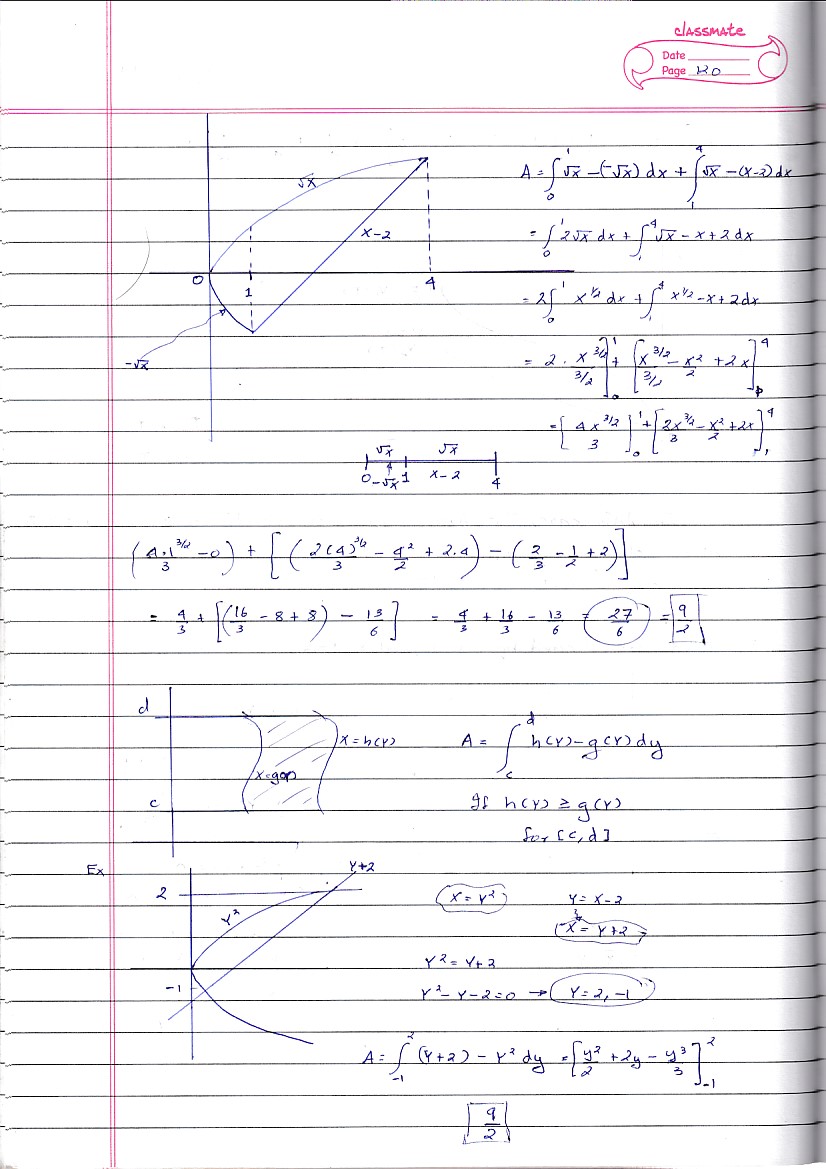 classmate
Date
Page 120
√x
A = ∫₀¹ √x − (−√x) dx + ∫₁⁴ √x − (x−2) dx
x−2
= ∫₀¹ 2√x dx + ∫₁⁴ √x − x + 2 dx
0 1 4
= 2∫₀¹ x^{1/2} dx + ∫₁⁴ x^{1/2} − x + 2 dx
−√x
= 2 · x^{3/2}/(3/2) ]₀¹ + [ x^{3/2}/(3/2) − x²/2 + 2x ]₁⁴
= [ 4x^{3/2}/3 ]₀¹ + [ 2x^{3/2}/3 − x²/2 + 2x ]₁⁴
√x √x
0 −√x 1 x−2 4
(4·1^{3/2}/3 − 0) + [ (2(4)^{3/2}/3 − 4²/2 + 2·4) − (2/3 − 1/2 + 2) ]
= 4/3 + [ (16/3 − 8 + 8) − 13/6 ] = 4/3 + 16/3 − 13/6 = 27/6 = 9/2
d
x = h(y)
A = ∫_c^d h(y) − g(y) dy
x = g(y)
c
If h(y) ≥ g(y)
for [c, d]
Ex
y+2
2
y²
x = y²
y = x−2
x = y+2
y² = y+2
−1
y² − y − 2 = 0 → y = 2, −1
A = ∫₋₁² (y+2) − y² dy = [ y²/2 + 2y − y³/3 ]₋₁²
9/2